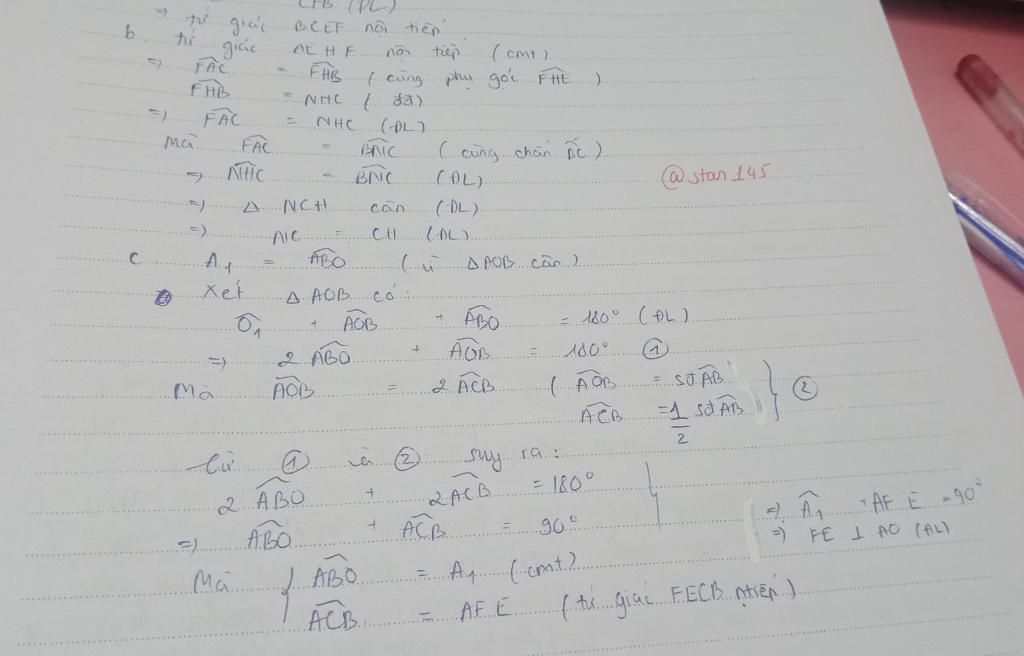 CFB (ĐL)
⇒ tứ giác BCEF nội tiếp
b. tứ giác AEHF nội tiếp (cmt)
⇒ FAC = FHB (cùng phụ góc FHE)
FHB = NHC (đđ)
⇒ FAC = NHC (ĐL)
Mà FAC = BNC (cùng chắn BC)
⇒ NHC = BNC (ĐL)
@stan145
⇒ Δ NCH cân (ĐL)
⇒ NC = CH (ĐL)
c A₁ = ABO (vì Δ AOB cân)
Xét Δ AOB có:
O₁ + AOB + ABO = 180° (ĐL)
⇒ 2 ABO + AOB = 180° ①
Mà AOB = 2 ACB ( AOB = sđ AB
ACB = 1/2 sđ AB } ②
Từ ① và ② suy ra:
2 ABO + 2ACB = 180°
⇒ ABO + ACB = 90°
Mà { ABO = A₁ (cmt)
ACB = AFE (tứ giác FECB ntiếp)
⇒ A₁ + AFE = 90°
⇒ FE ⊥ AO (ĐL)